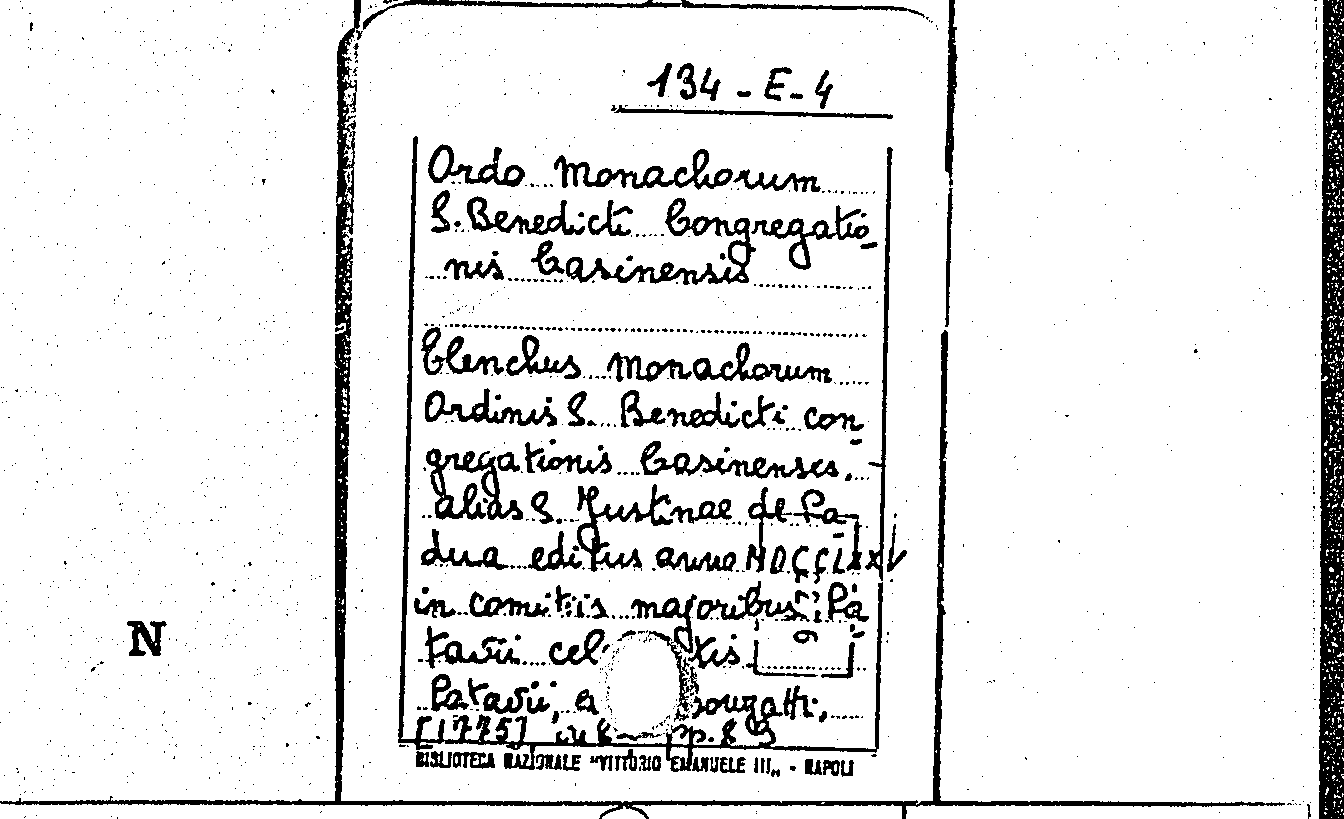 134-E-4
Ordo Monachorum
S. Benedicti Congregatio-
nis Casinensis
Elenchus Monachorum
Ordinis S. Benedicti con-
gregationis Casinensis.
alias S. Justinae de Pa-
dua editus anno MDCCLXXV
in comitiis majoribus Pa-
tavii cel tis
N
Patavii,
[1775] in 8 pp. 89
BIBLIOTECA NAZIONALE "VITTORIO EMANUELE III" - NAPOLI